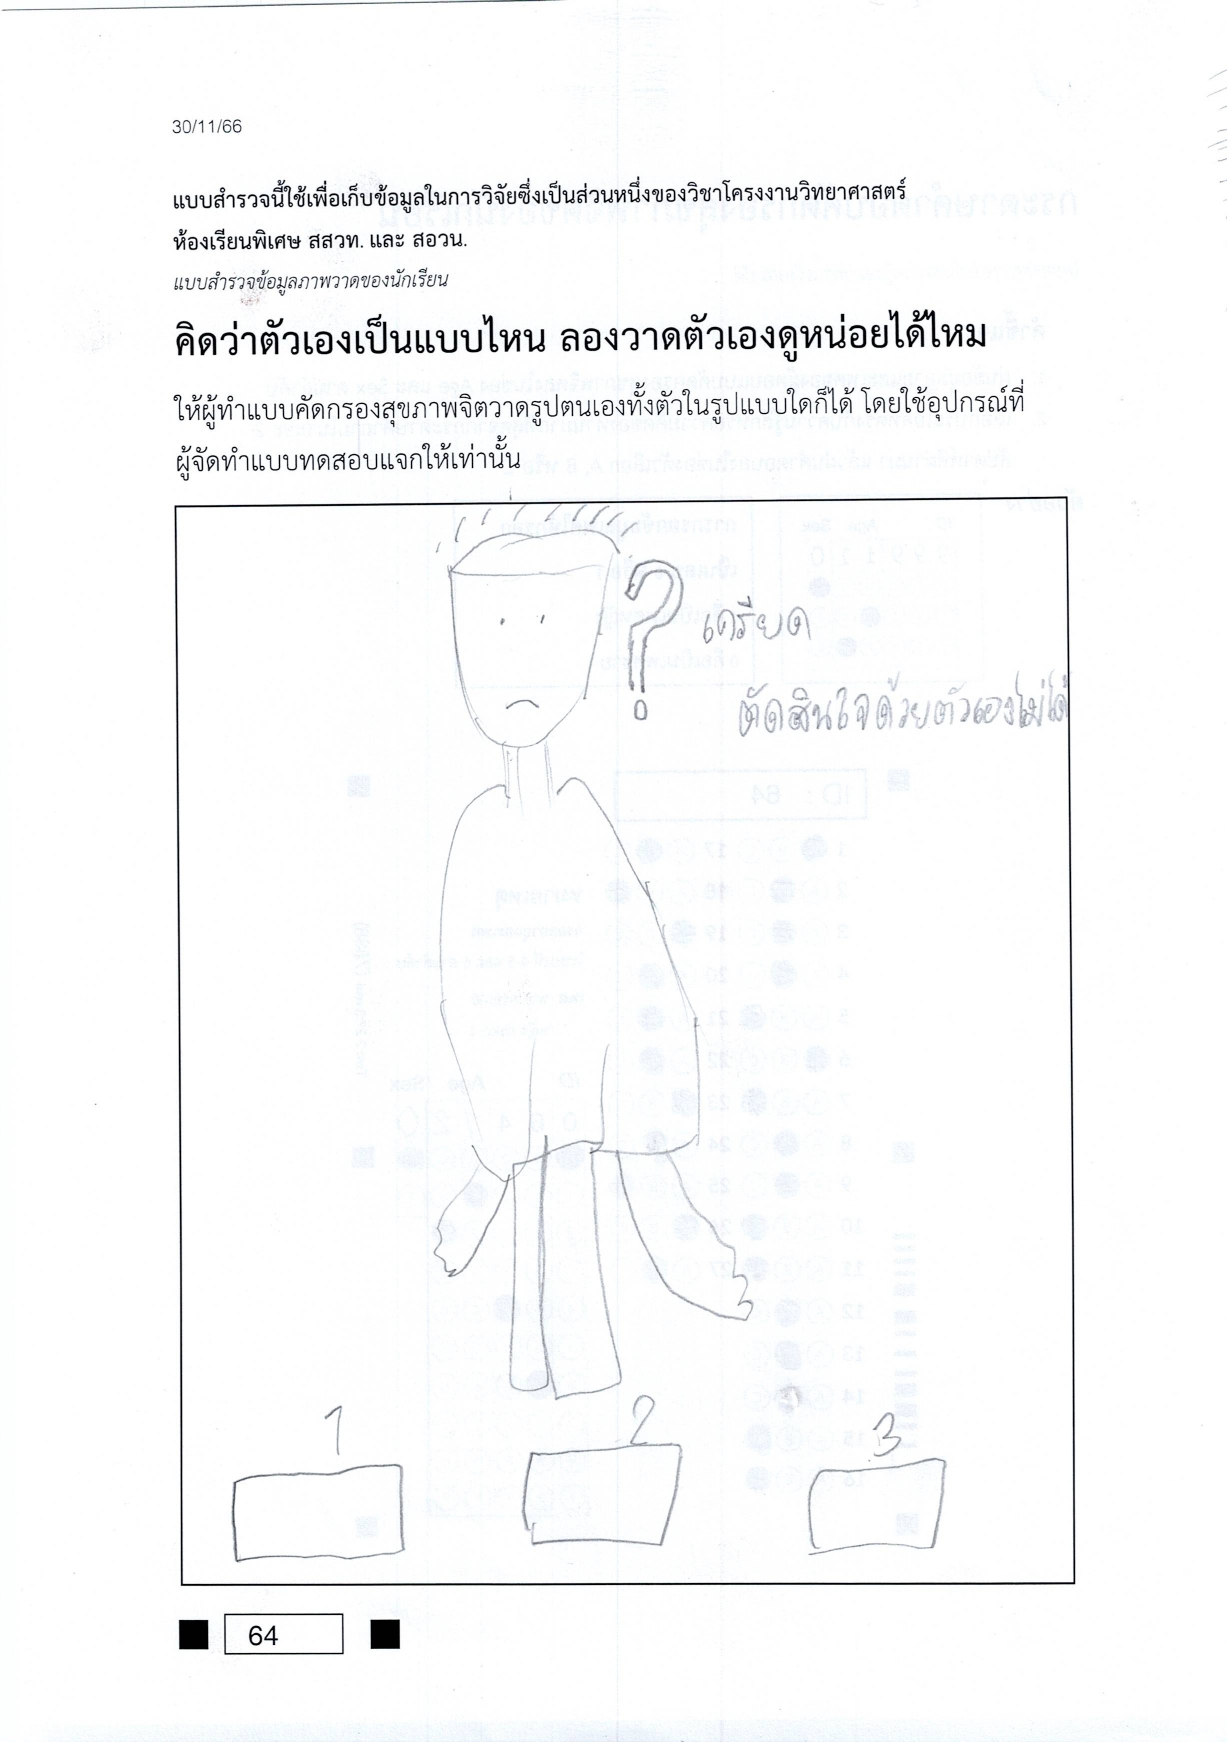 30/11/66
แบบสำรวจนี้ใช้เพื่อเก็บข้อมูลในการวิจัยซึ่งเป็นส่วนหนึ่งของวิชาโครงงานวิทยาศาสตร์
ห้องเรียนพิเศษ สสวท. และ สอวน.
แบบสำรวจข้อมูลภาพวาดของนักเรียน
คิดว่าตัวเองเป็นแบบไหน ลองวาดตัวเองดูหน่อยได้ไหม
ให้ผู้ทำแบบคัดกรองสุขภาพจิตวาดรูปตนเองทั้งตัวในรูปแบบใดก็ได้ โดยใช้อุปกรณ์ที่
ผู้จัดทำแบบทดสอบแจกให้เท่านั้น
?
เครียด
ตัดสินใจด้วยตัวเองไม่ได้
1 2 3
64